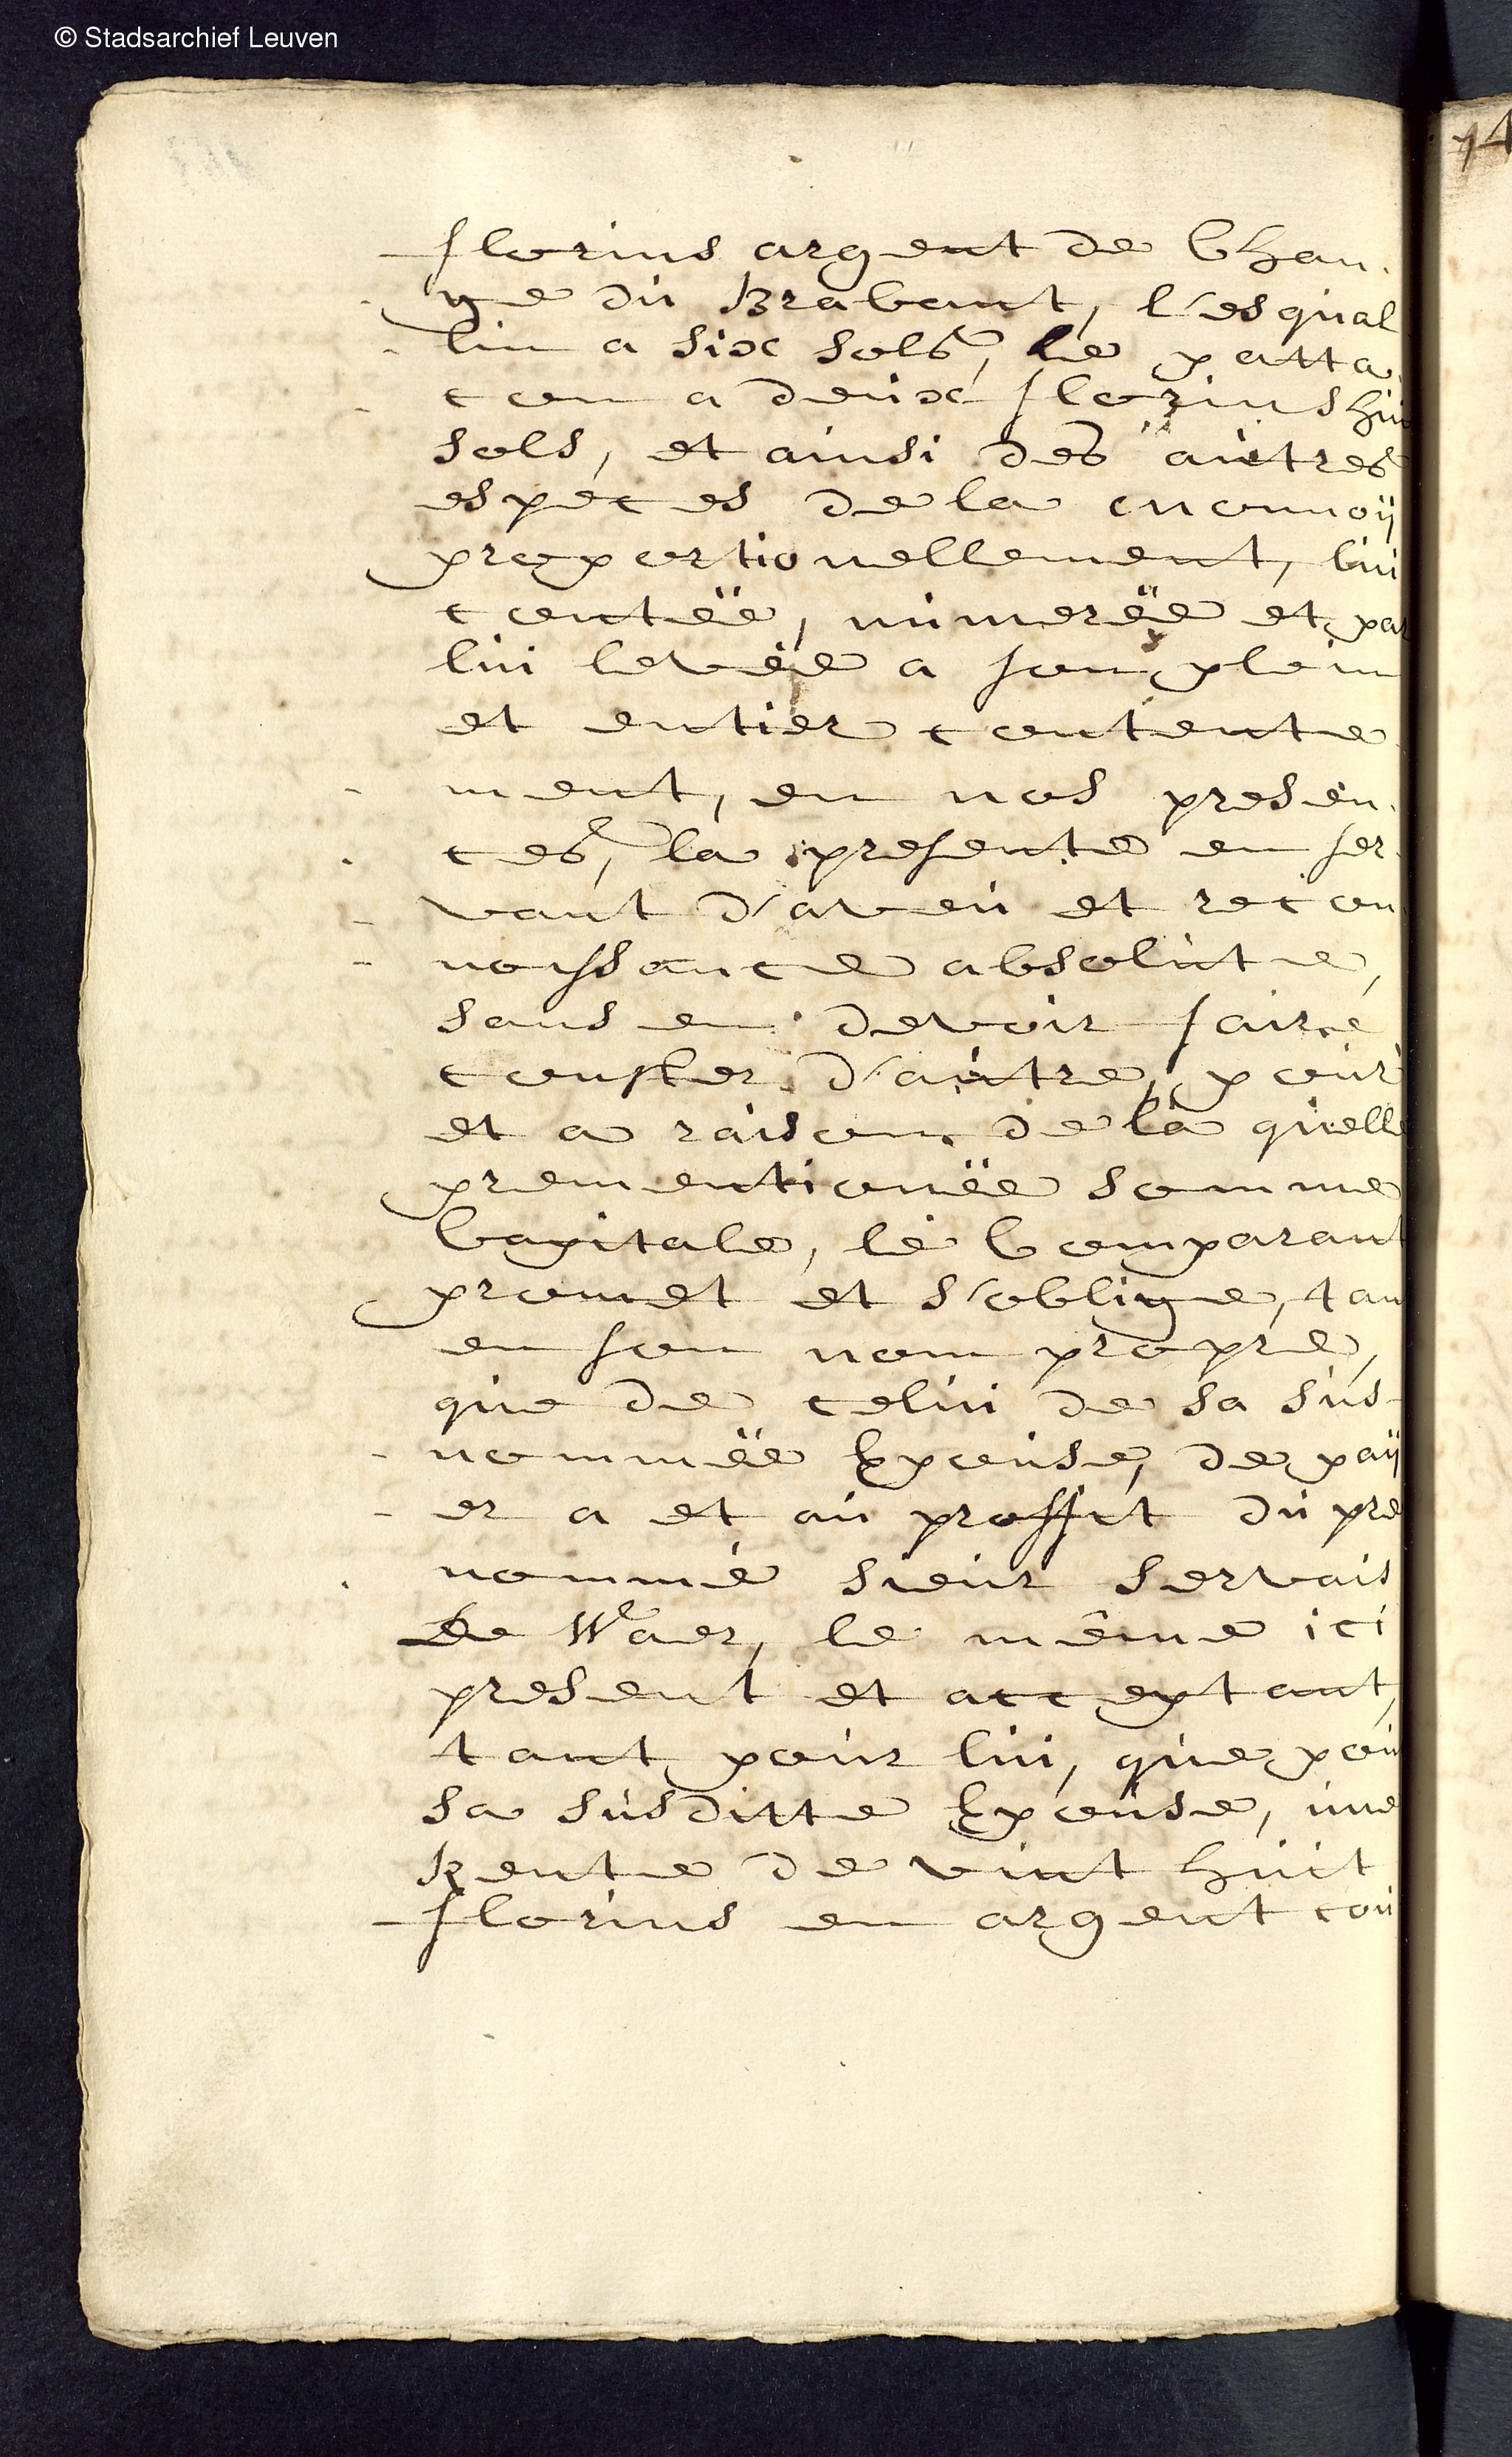 © Stadsarchief Leuven
14
florins argent de Chan-
ge du Brabant, l'esqual
lin a sixc sols, le patta
con a deuxc florins hui
sols, et ainsi des autres
espéces de la monnoÿ
proportionellement, lui
contëe, numerëe et par
lui levëe a son plein
et entier contente
ment, en nos presen-
ces, la presente en ser-
vant d'aveu et recon
noissance absolute,
sans en devoir faire
conster d'autre, pour
et a raison de la quelle
prementionëe somme
Capitale, le Comparant
promet et s'oblige, tan
en son nom propre,
que de celui de sa sus-
nommëe Epouse, de paÿ
er a et au proffit du pre
nommé sieur Servais
De Waer, le même ici
present et acceptant,
tant pour lui, que pou
sa susditte Epouse, une
Rente de vint huit
florins en argent cou